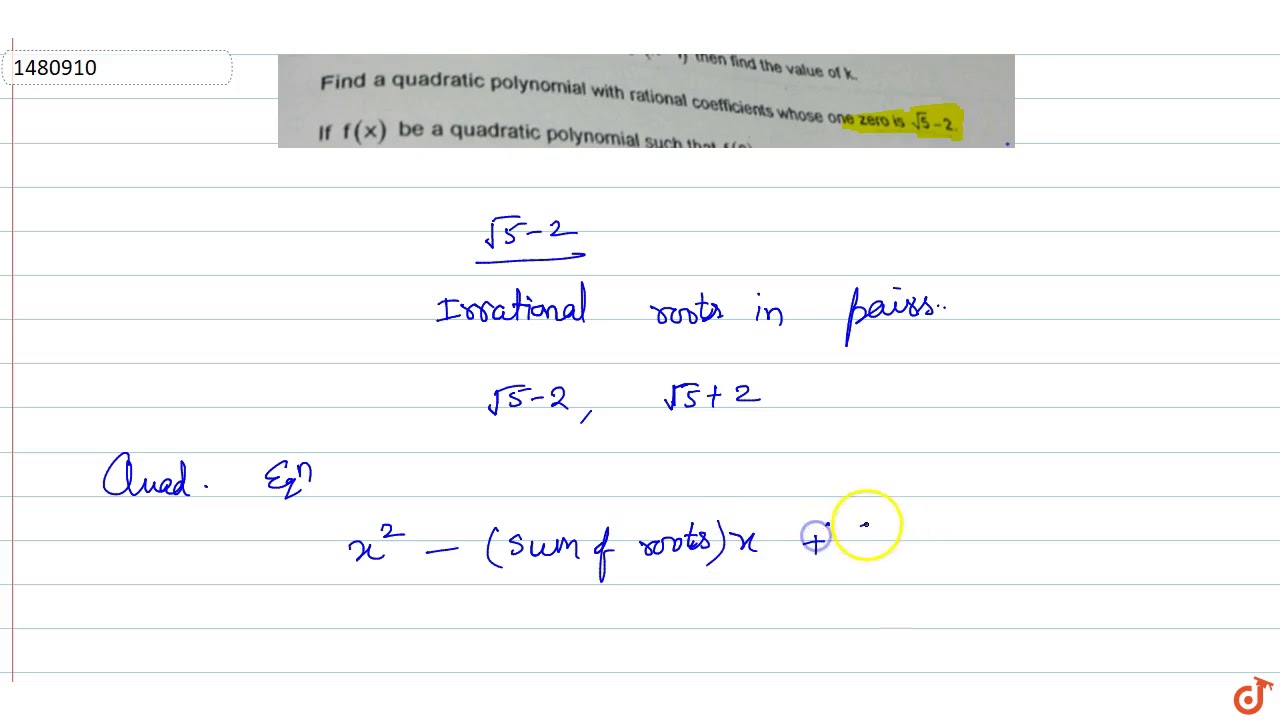 1480910
then find the value of k.
Find a quadratic polynomial with rational coefficients whose one zero is √5 – 2.
If f(x) be a quadratic polynomial such that
√5 - 2
Irrational roots in pairs..
√5 - 2 , √5 + 2
Quad. Eqn
x² - (sum of roots)x +